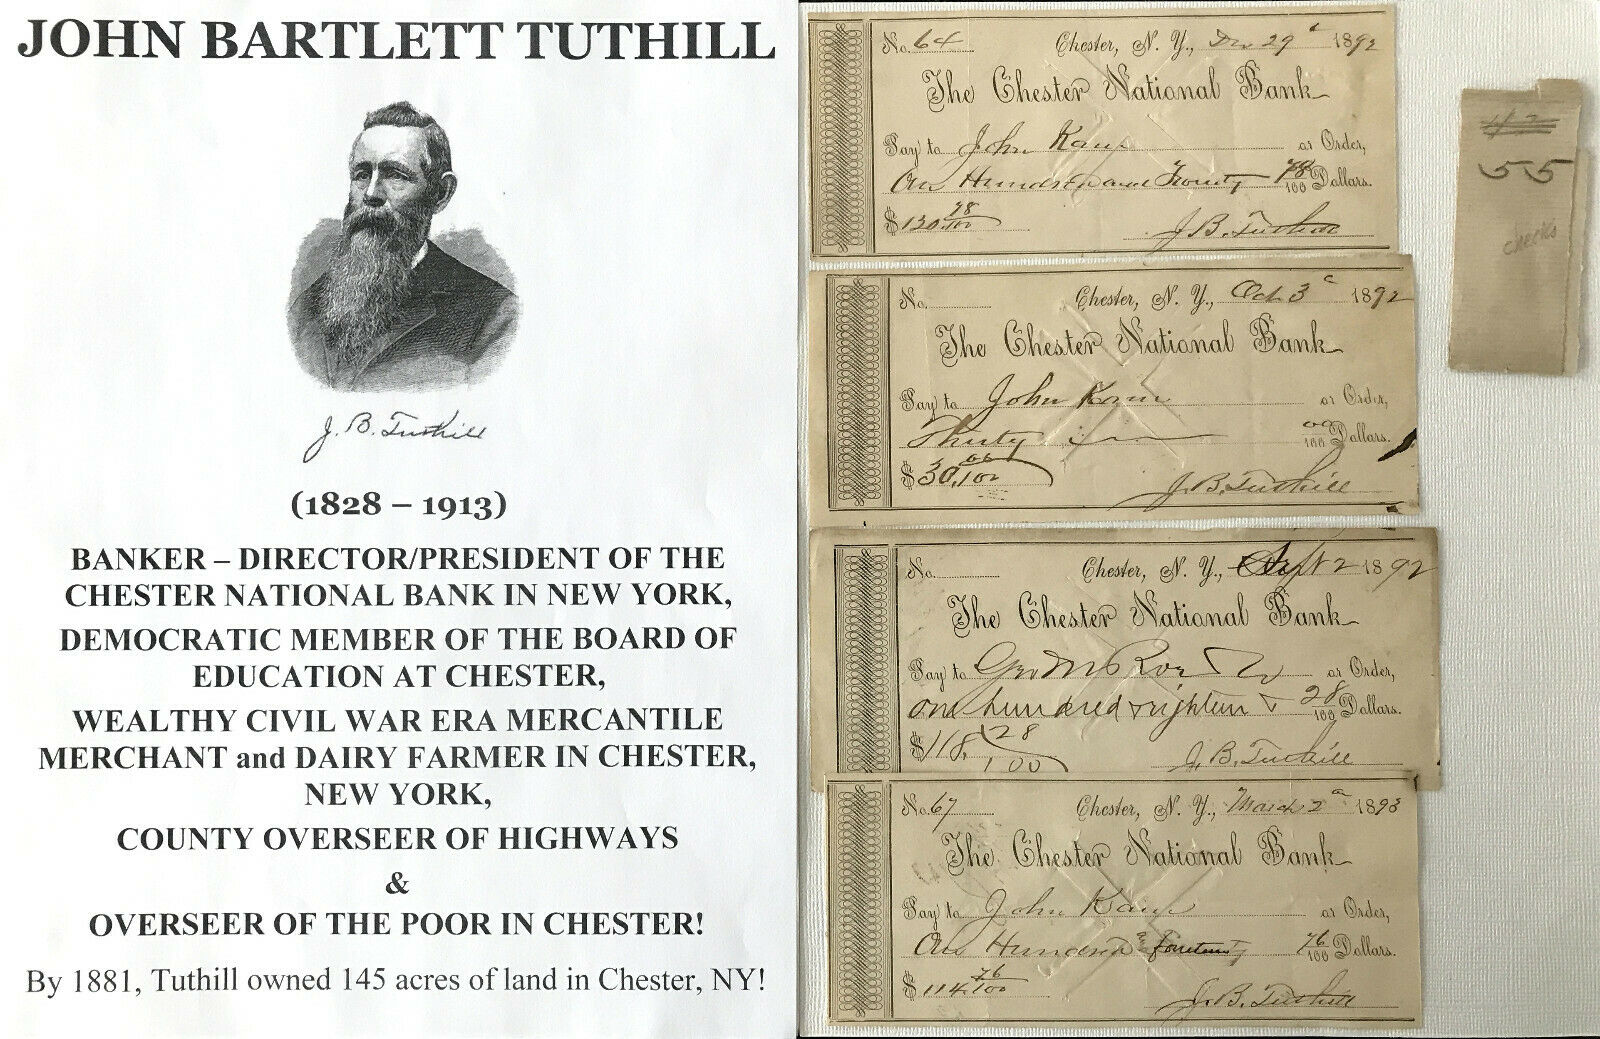 JOHN BARTLETT TUTHILL
J. B. Tuthill
(1828 – 1913)
BANKER – DIRECTOR/PRESIDENT OF THE
CHESTER NATIONAL BANK IN NEW YORK,
DEMOCRATIC MEMBER OF THE BOARD OF
EDUCATION AT CHESTER,
WEALTHY CIVIL WAR ERA MERCANTILE
MERCHANT and DAIRY FARMER IN CHESTER,
NEW YORK,
COUNTY OVERSEER OF HIGHWAYS
&
OVERSEER OF THE POOR IN CHESTER!
By 1881, Tuthill owned 145 acres of land in Chester, NY!
No. 64 Chester, N. Y., 29 1892
The Chester National Bank
Pay to John or Order,
One Hundred and 78/100 Dollars.
$ 120 78/100
J. B. Tuthill
No. Chester, N. Y., Oct 3 1892
The Chester National Bank
Pay to John or Order,
Thirty 00/100 Dollars.
$ 30.00/100
J. B. Tuthill
No. Chester, N. Y., Sept 2 1892
The Chester National Bank
Pay to Geo M Roe or Order,
One hundred & eighteen & 28/100 Dollars.
$ 118, 28/100
J. B. Tuthill
No. 67 Chester, N. Y., March 2 1893
The Chester National Bank
Pay to John or Order,
One Hundred and fourteen 76/100 Dollars.
$ 114.76/100
J. B. Tuthill
55
checks